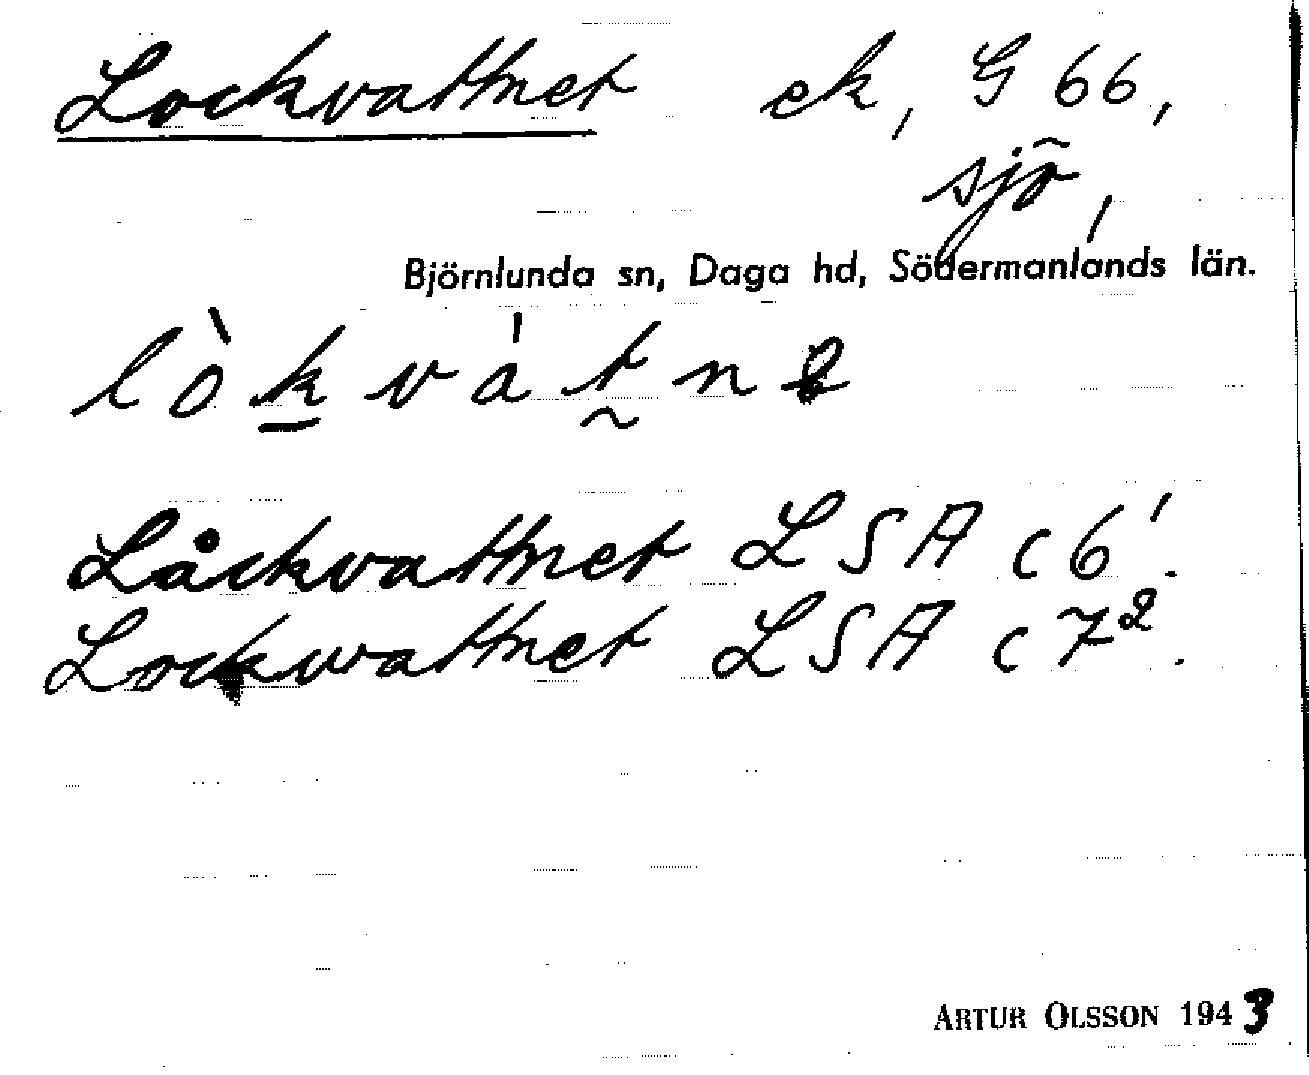 Lockvattnet ek, G 66,
sjö,
Björnlunda sn, Daga hd, Södermanlands län.
lòk̲vát̰nə
Låckvattnet LSA c6¹.
Lockvattnet LSA c7².
ARTUR OLSSON 1943